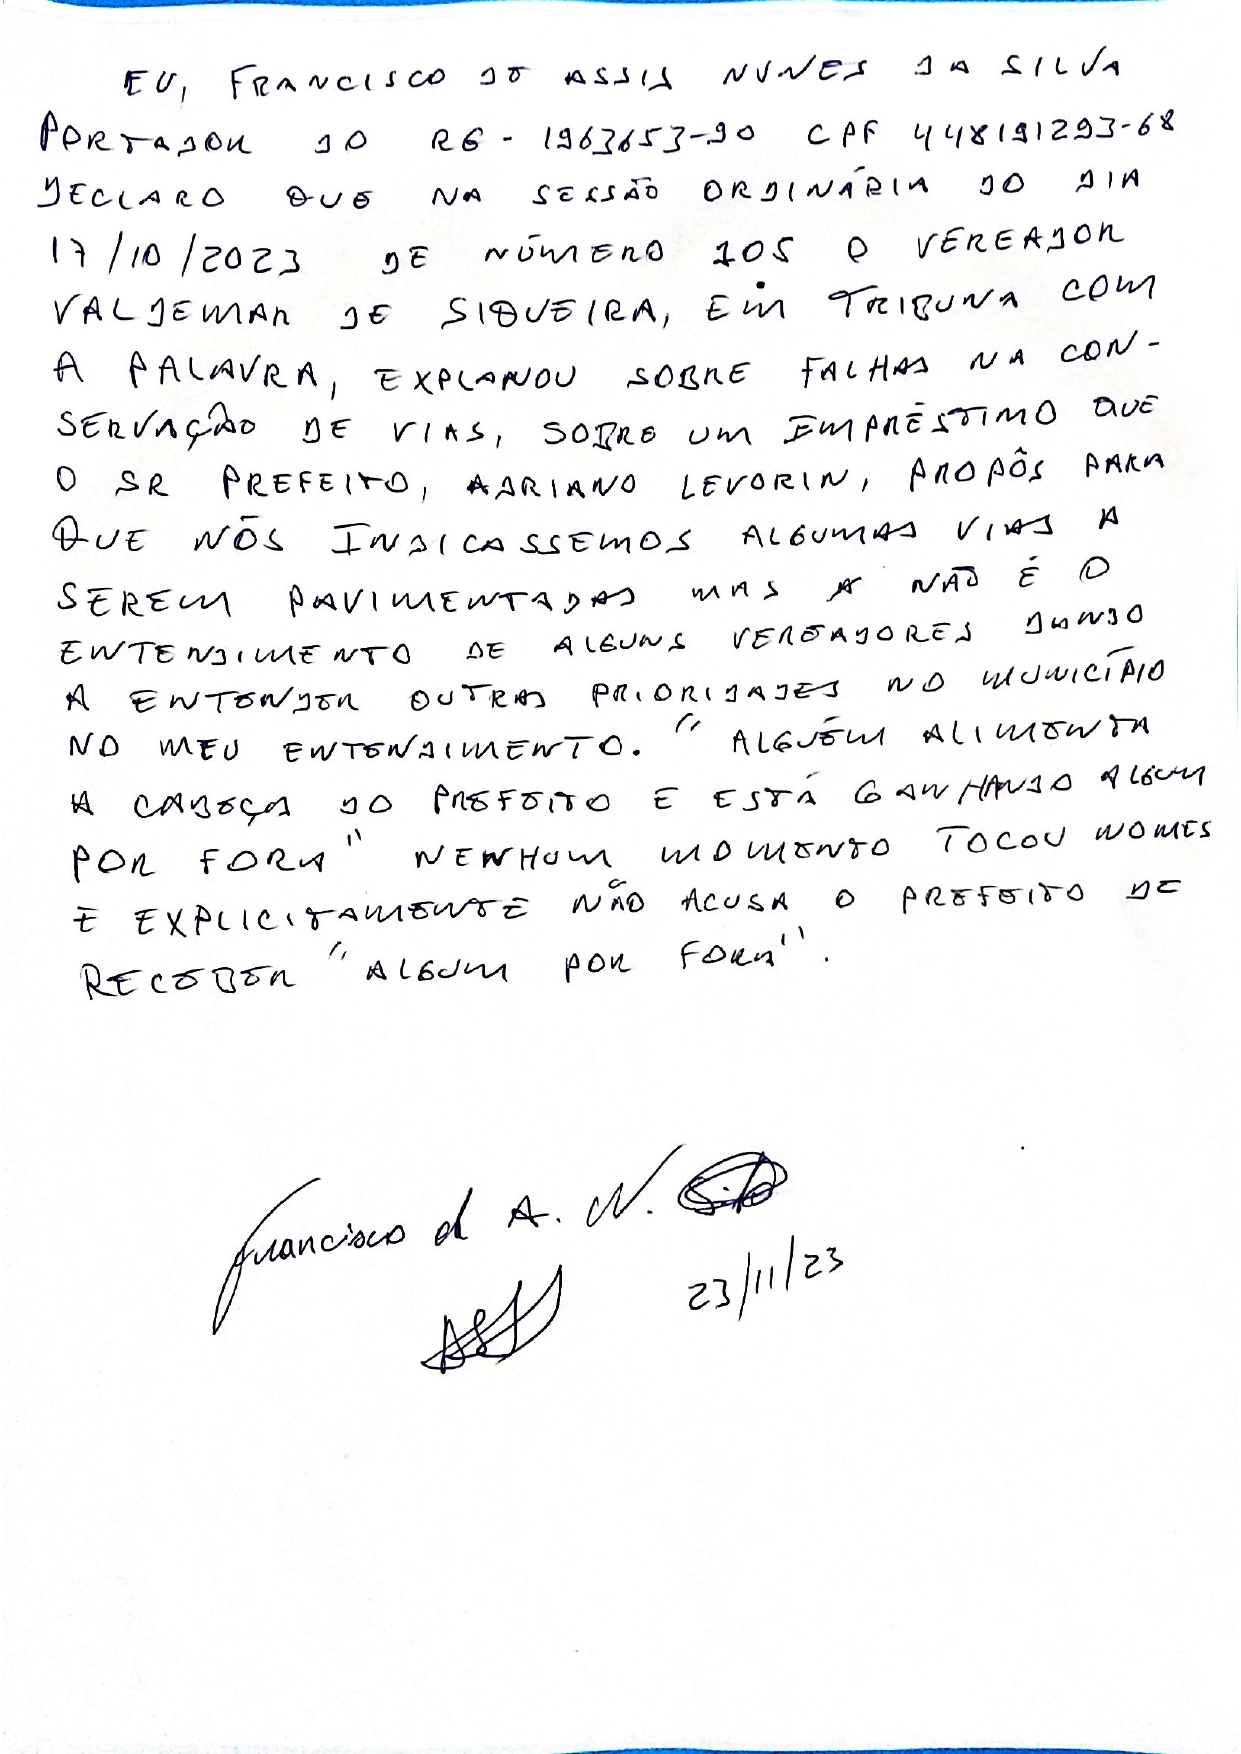 EU, FRANCISCO DE ASSIS NUNES DA SILVA
PORTADOR DO RG - 1963653-90 CPF 448191293-68
DECLARO QUE NA SESSÃO ORDINÁRIA DO DIA
17/10/2023 DE NÚMERO 105 O VEREADOR
VALDEMAR DE SIQUEIRA, EM TRIBUNA COM
A PALAVRA, EXPLANOU SOBRE FALHAS NA CON-
SERVAÇÃO DE VIAS, SOBRE UM EMPRÉSTIMO QUE
O SR PREFEITO, ADRIANO LEVORIN, PROPÔS PARA
QUE NÓS INDICASSEMOS ALGUMAS VIAS A
SEREM PAVIMENTADAS MAS A NÃO É O
ENTENDIMENTO DE ALGUNS VEREADORES DANDO
A ENTENDER OUTRAS PRIORIDADES NO MUNICÍPIO
NO MEU ENTENDIMENTO. "ALGUÉM ALIMENTA
A CABEÇA DO PREFEITO E ESTÁ GANHANDO ALGUM
POR FORA" NENHUM MOMENTO TOCOU NOMES
E EXPLICITAMENTE NÃO ACUSA O PREFEITO DE
RECEBER "ALGUM POR FORA".
Francisco d A. N. Silva
23/11/23